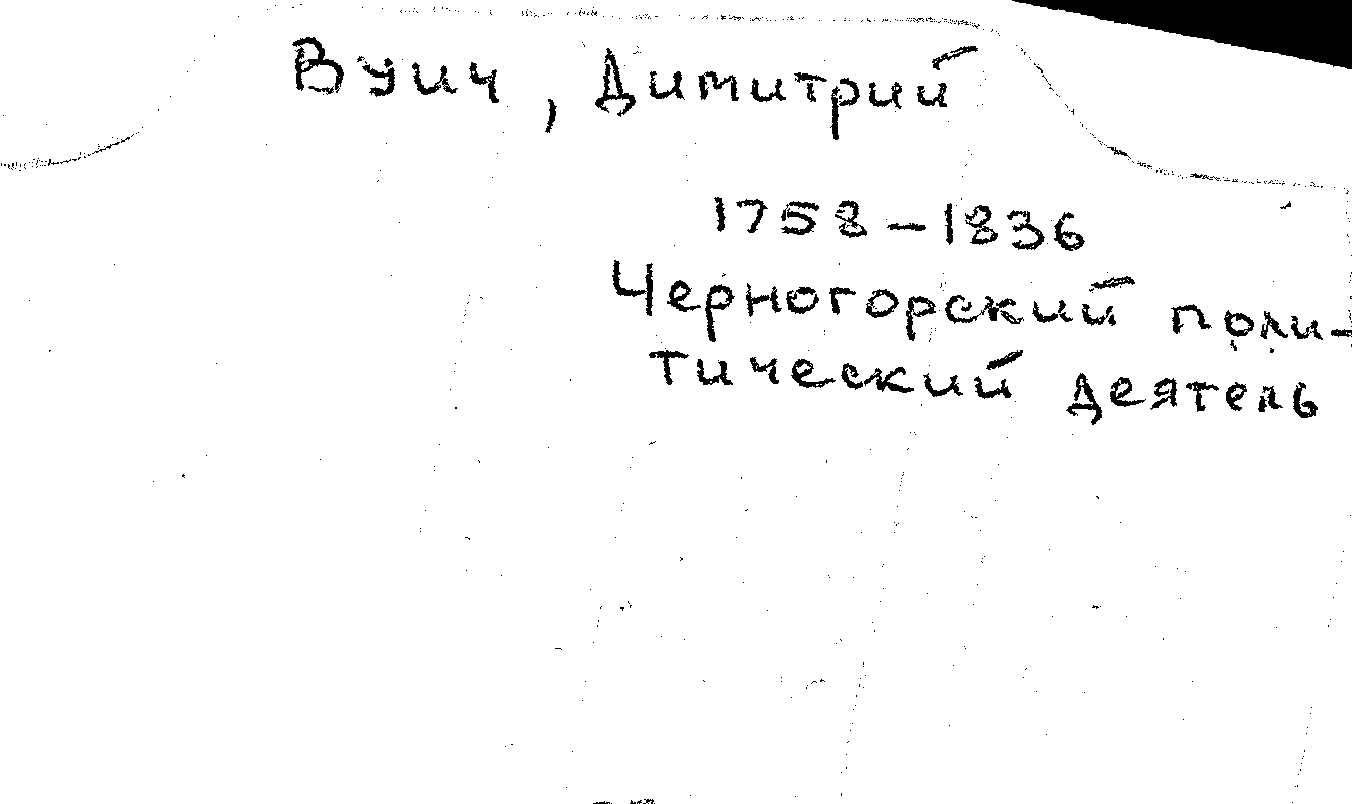 Вуич, Димитрий
1758-1836
Черногорский поли-
тический деятель